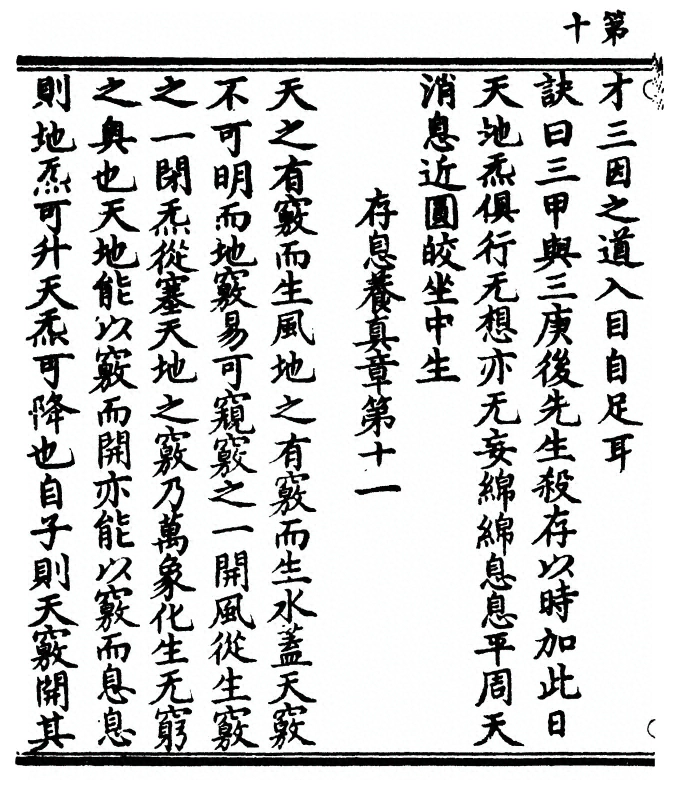 第十
才三因之道入目自足耳
訣曰三甲與三庚後先生殺存以時加此日
天池炁俱行无想亦无妄綿綿息息平周天
消息近圓皎坐中生
存息養真章第十一
天之有竅而生風地之有竅而生水蓋天竅
不可明而地竅易可窺竅之一開風從生竅
之一閉炁從塞天地之竅乃萬象化生无窮
之奥也天地能以竅而開亦能以竅而息息
則地炁可升天炁可降也自子則天竅開其